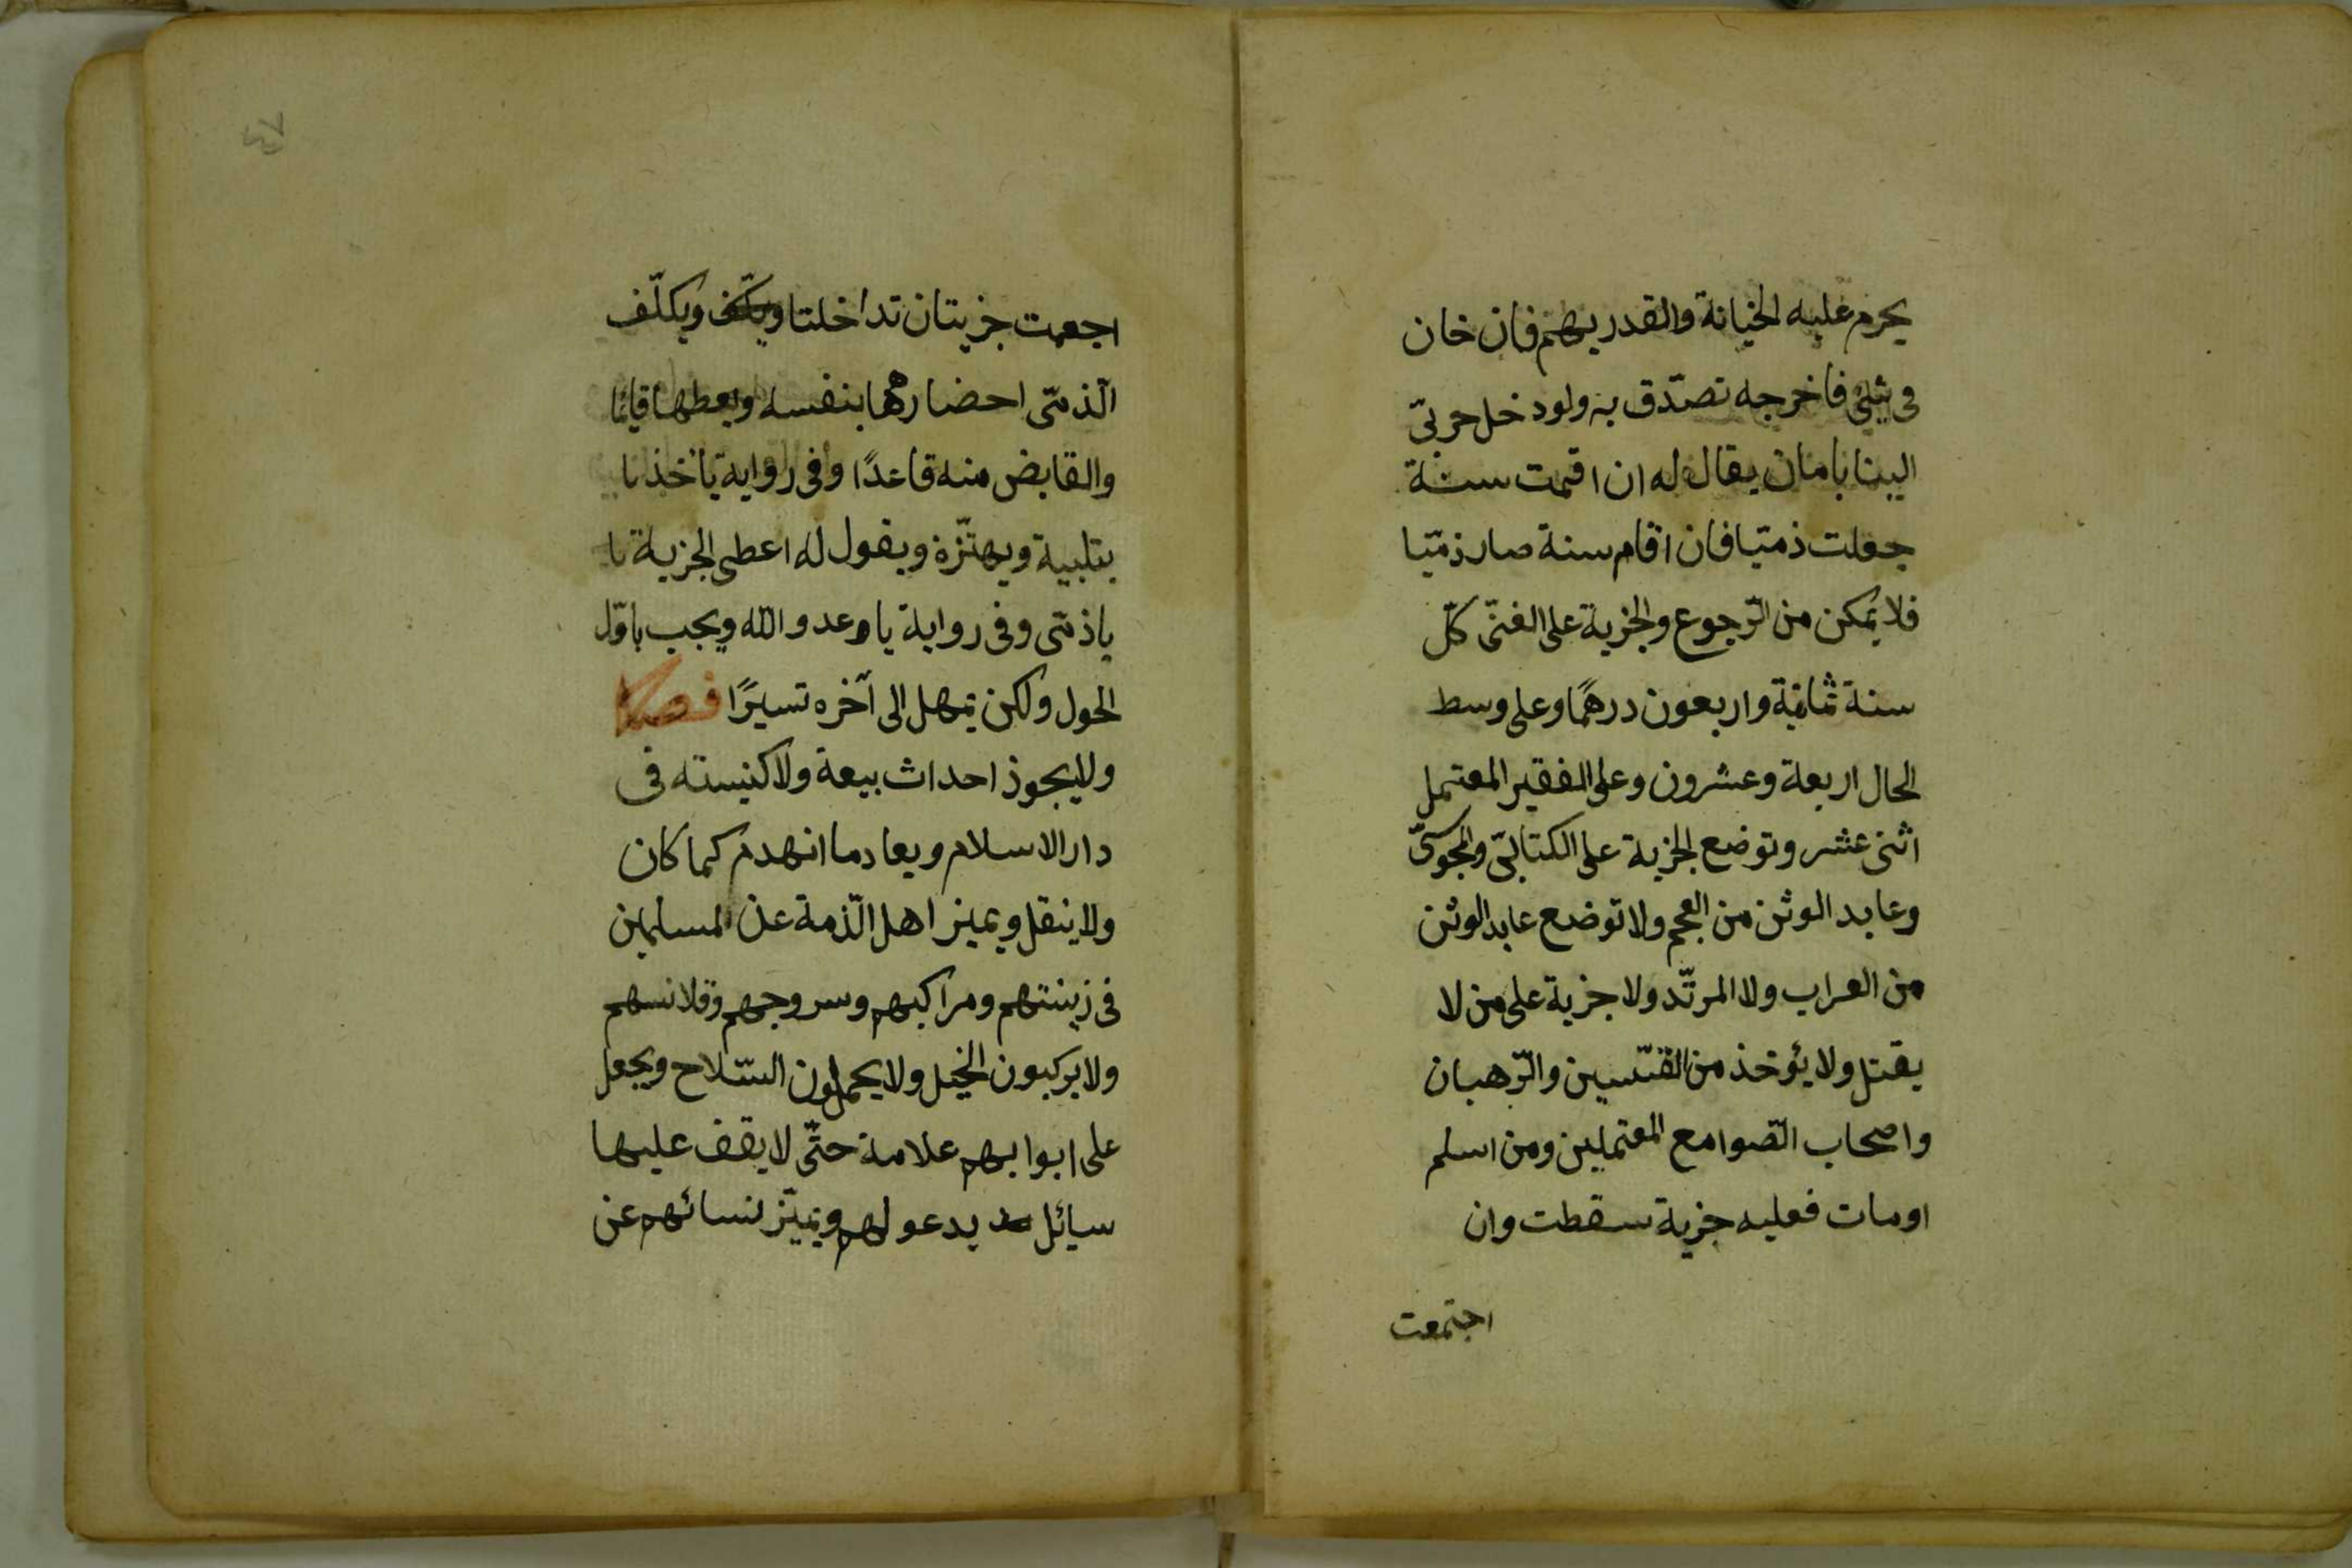 يحرم عليه الخيانة والقدر بهم فان خان
فى شئ فاخرجه تصدّق به ولو دخل حربىّ
الينا بامان يقال له ان اقمت سنة
جعلت ذمّيا فان اقام سنة صار ذمّيا
فلا يمكن من الرّجوع والجزية على الغنىّ كلّ
سنة ثمانية واربعون درهمًا وعلى وسط
الحال اربعة وعشرون وعلى الفقير المعتمل
اثنى عشر وتوضع الجزية على الكتابىّ والمجوسىّ
وعابد الوثن من العجم ولا توضع عابد الوثن
من العراب ولا المرتّد ولا جزية على من لا
يقتل ولا يؤخذ من القسّيسين والرّهبان
واصحاب الصّوامع المعتملين ومن اسلم
اومات فعليه جزية سقطت وان
اجتمعت
٤٧
اجعمت جزيتان تداخلتا ويكلّف
الّذمّى احضارهما بنفسه ويعطها قائما
والقابض منه قاعدًا وفى رواية ياخذنا
بتلبية ويهتّزه ويقول له اعطى الجزية يا
ياذمّى وفى رواية يا وعد والله ويجب باوّل
الحول ولكن يمهل الى آخره تسيرًا فصل
ولا يجوز احداث بيعة ولا كنيسته فى
دار الاسلام ويعاد ما انهدم كما كان
ولا ينقل ويميز اهل الّذمة عن المسلمين
فى زينتهم ومراكبهم وسروجهم وقلانسهم
ولا يركبون الخيل ولا يحملون السّلاح ويجعل
على ابوابهم علامة حتّى لا يقف عليها
سايئل يدعو لهم ويميّز نسائهم عن